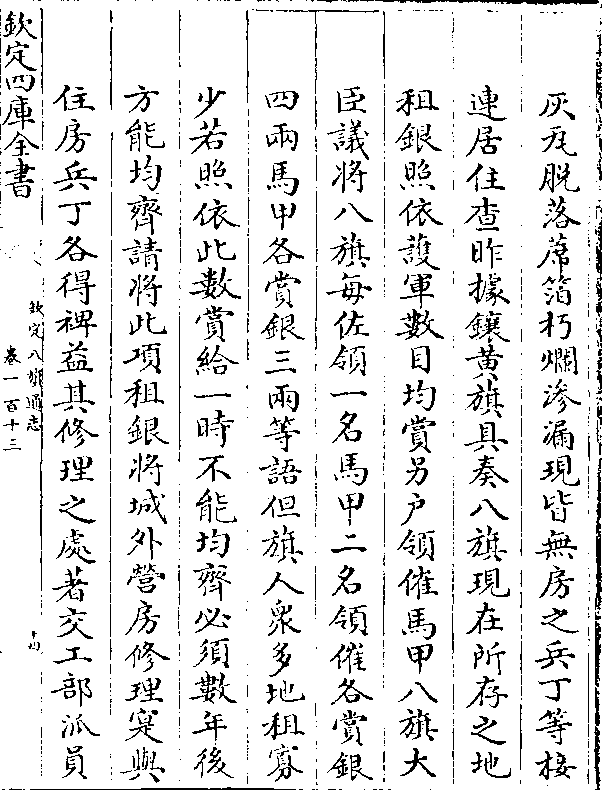 灰瓦脫落蓆箔朽爛滲漏現皆無房之兵丁等接
連居住查昨據鑲黃旗具奏八旗現在所存之地
租銀照依護軍數目均賞另户領催馬甲八旗大
臣議將八旗每佐領一名馬甲二名領催各賞銀
四兩馬甲各賞銀三兩等語但旗人衆多地租寡
少若照依此數賞給一時不能均齊必須數年後
方能均齊請將此項租銀將城外營房修理寔與
住房兵丁各得裨益其修理之處著交工部派員
欽定四庫全書
欽定八旗通志
卷一百十三
十四